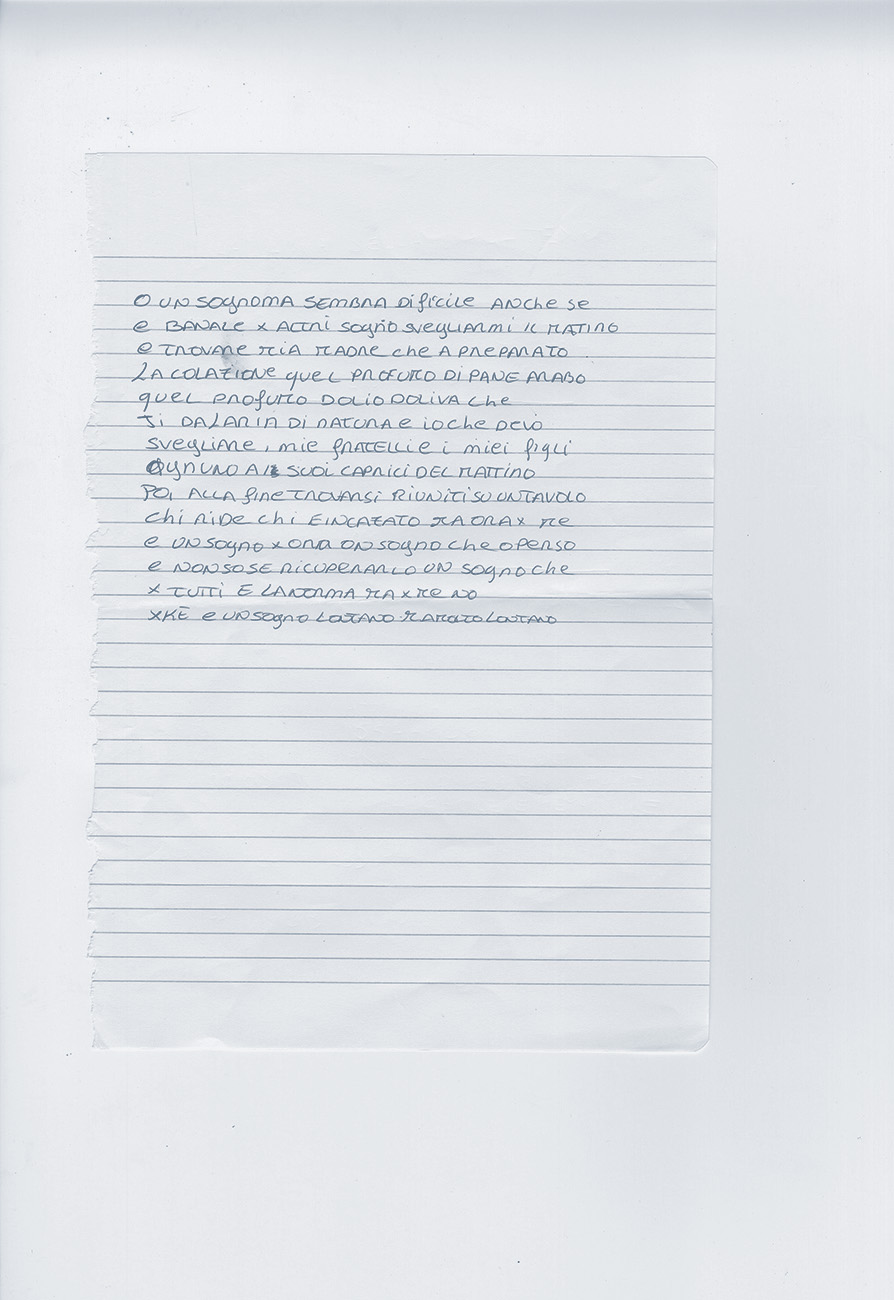 O UN SOgNOMA SEMBRA Dificile ANche se
e BANALE x ALTRI sogno svegliarmi IL MATINO
e TROVARE MIA MADRE che A PREPARATO
LA COLAZIONE quel PROFUMO DI PANE ARABO
quel PROfUMO DOLIO DOLIVA che
TI DA LARIA DI NATURA e io che Devo
svegliare, mie fRATELLI e i miei figli
OgNUNO AI SUOI CAPRICI DEL MATTINO
POI ALLA fINE TROVARSI RIUNITI SU UN TAVOLO
chi RIDe chi E INCAZATO MA ORA x Me
e UN SOgNO x ORA UN SOgNO che O PERSO
e NON SO SE RICUPERARLO UN SOgNO che
x TUTTI E LA NORMA MA x Me NO
xKE e UN SOgNO LONTANO MA MOLTO LONTANO